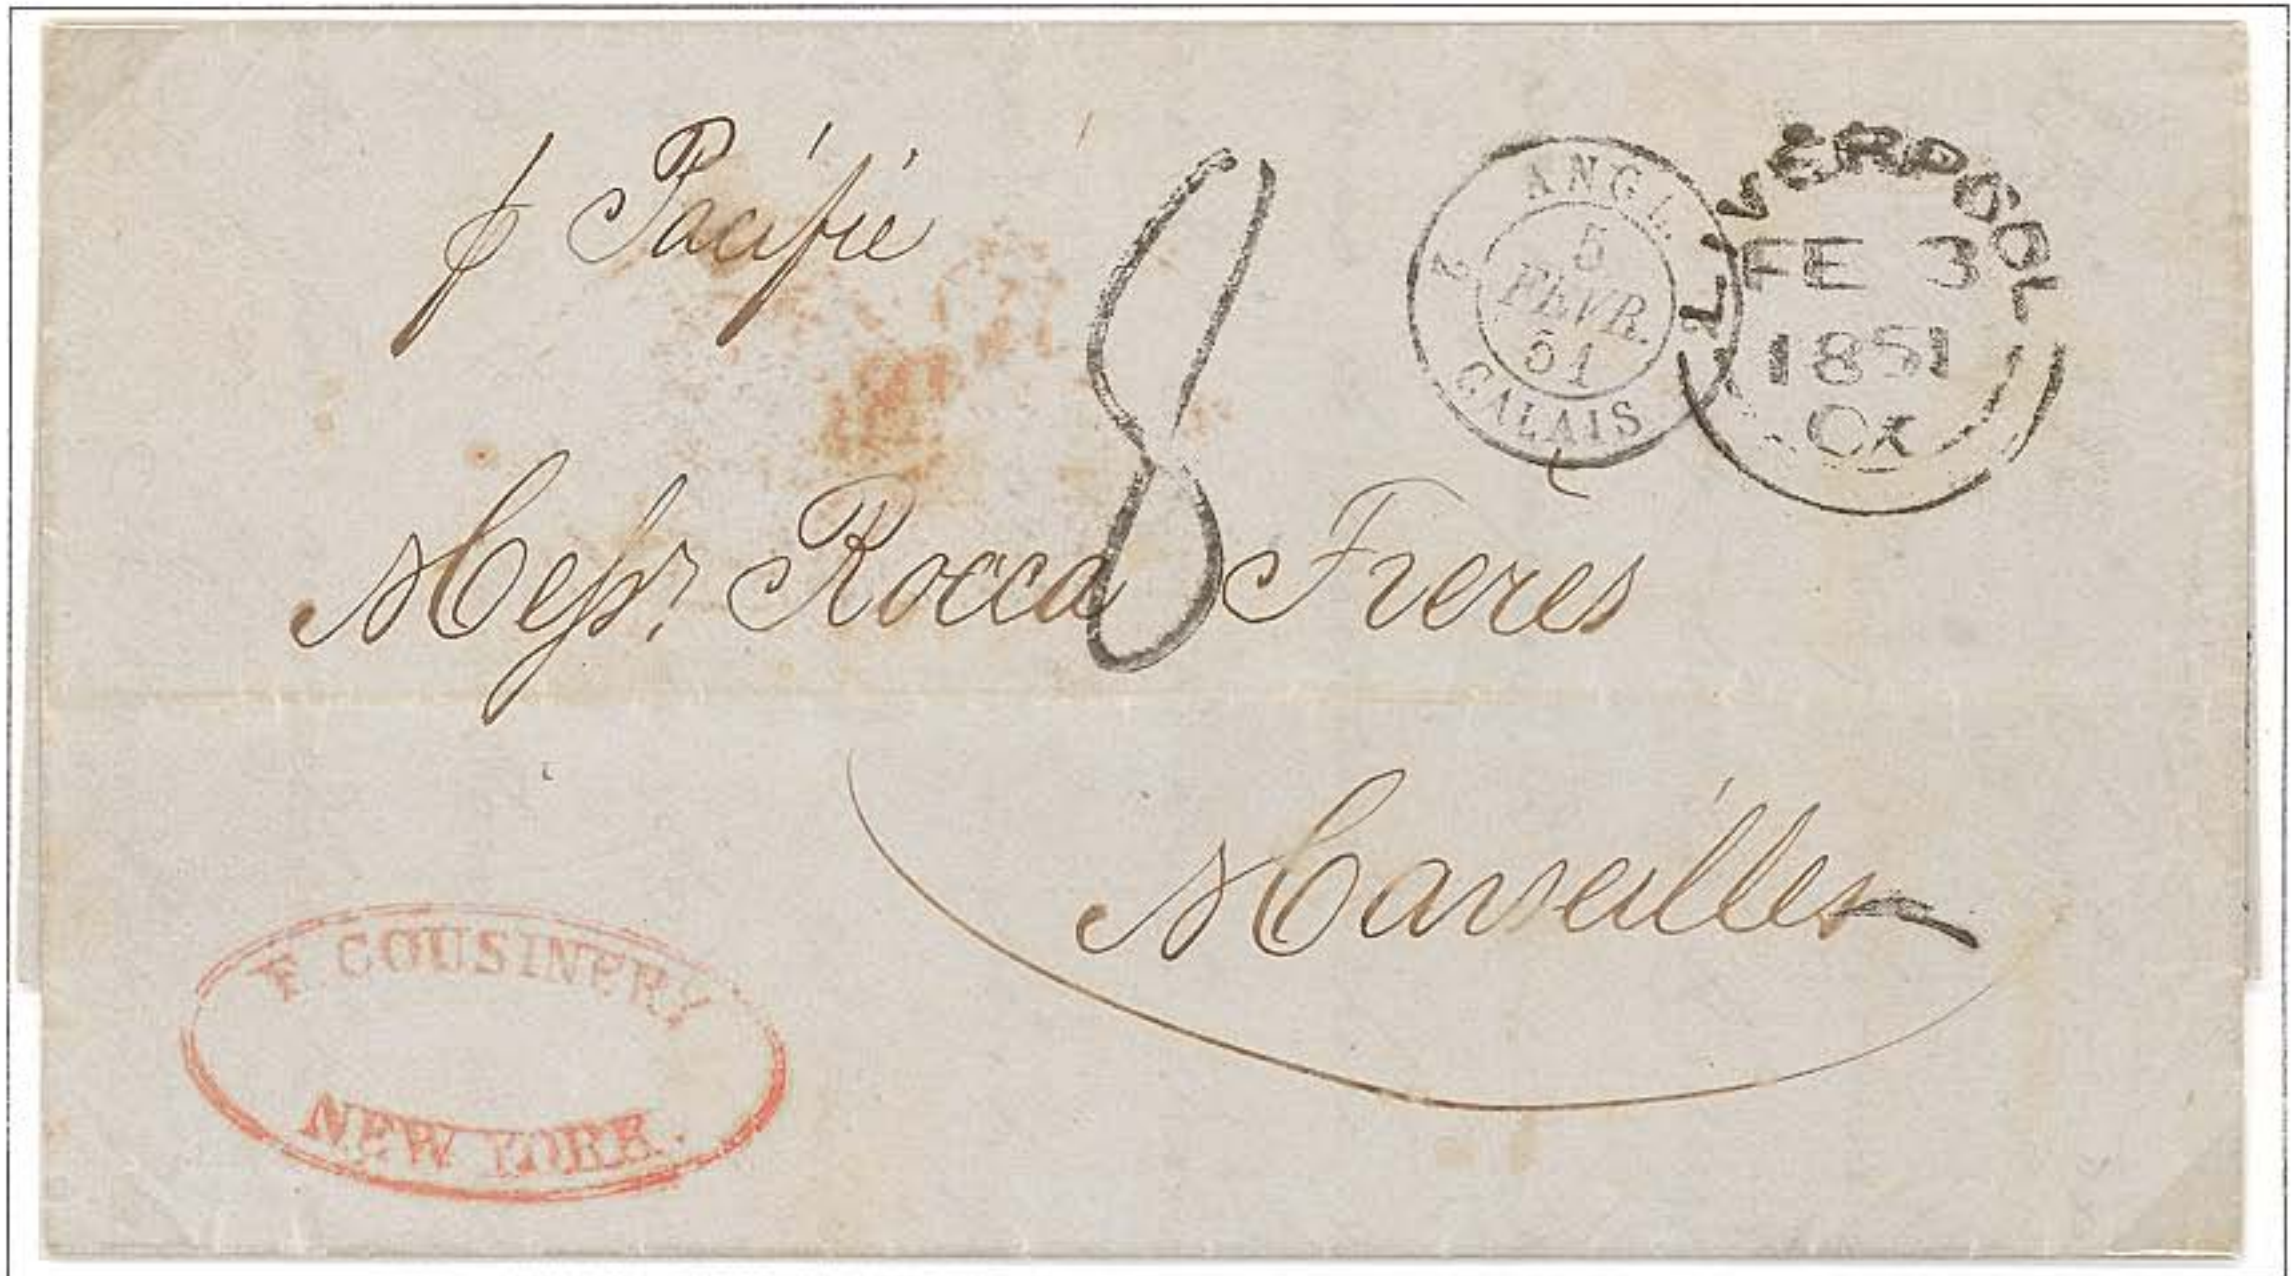 p Pacific
8
ANGL.
2
5
FEVR.
51
CALAIS
LIVERPOOL
FE 3
1851
OX
Messrs Rocca Freres
Marseilles
F. COUSINERY
NEW YORK.